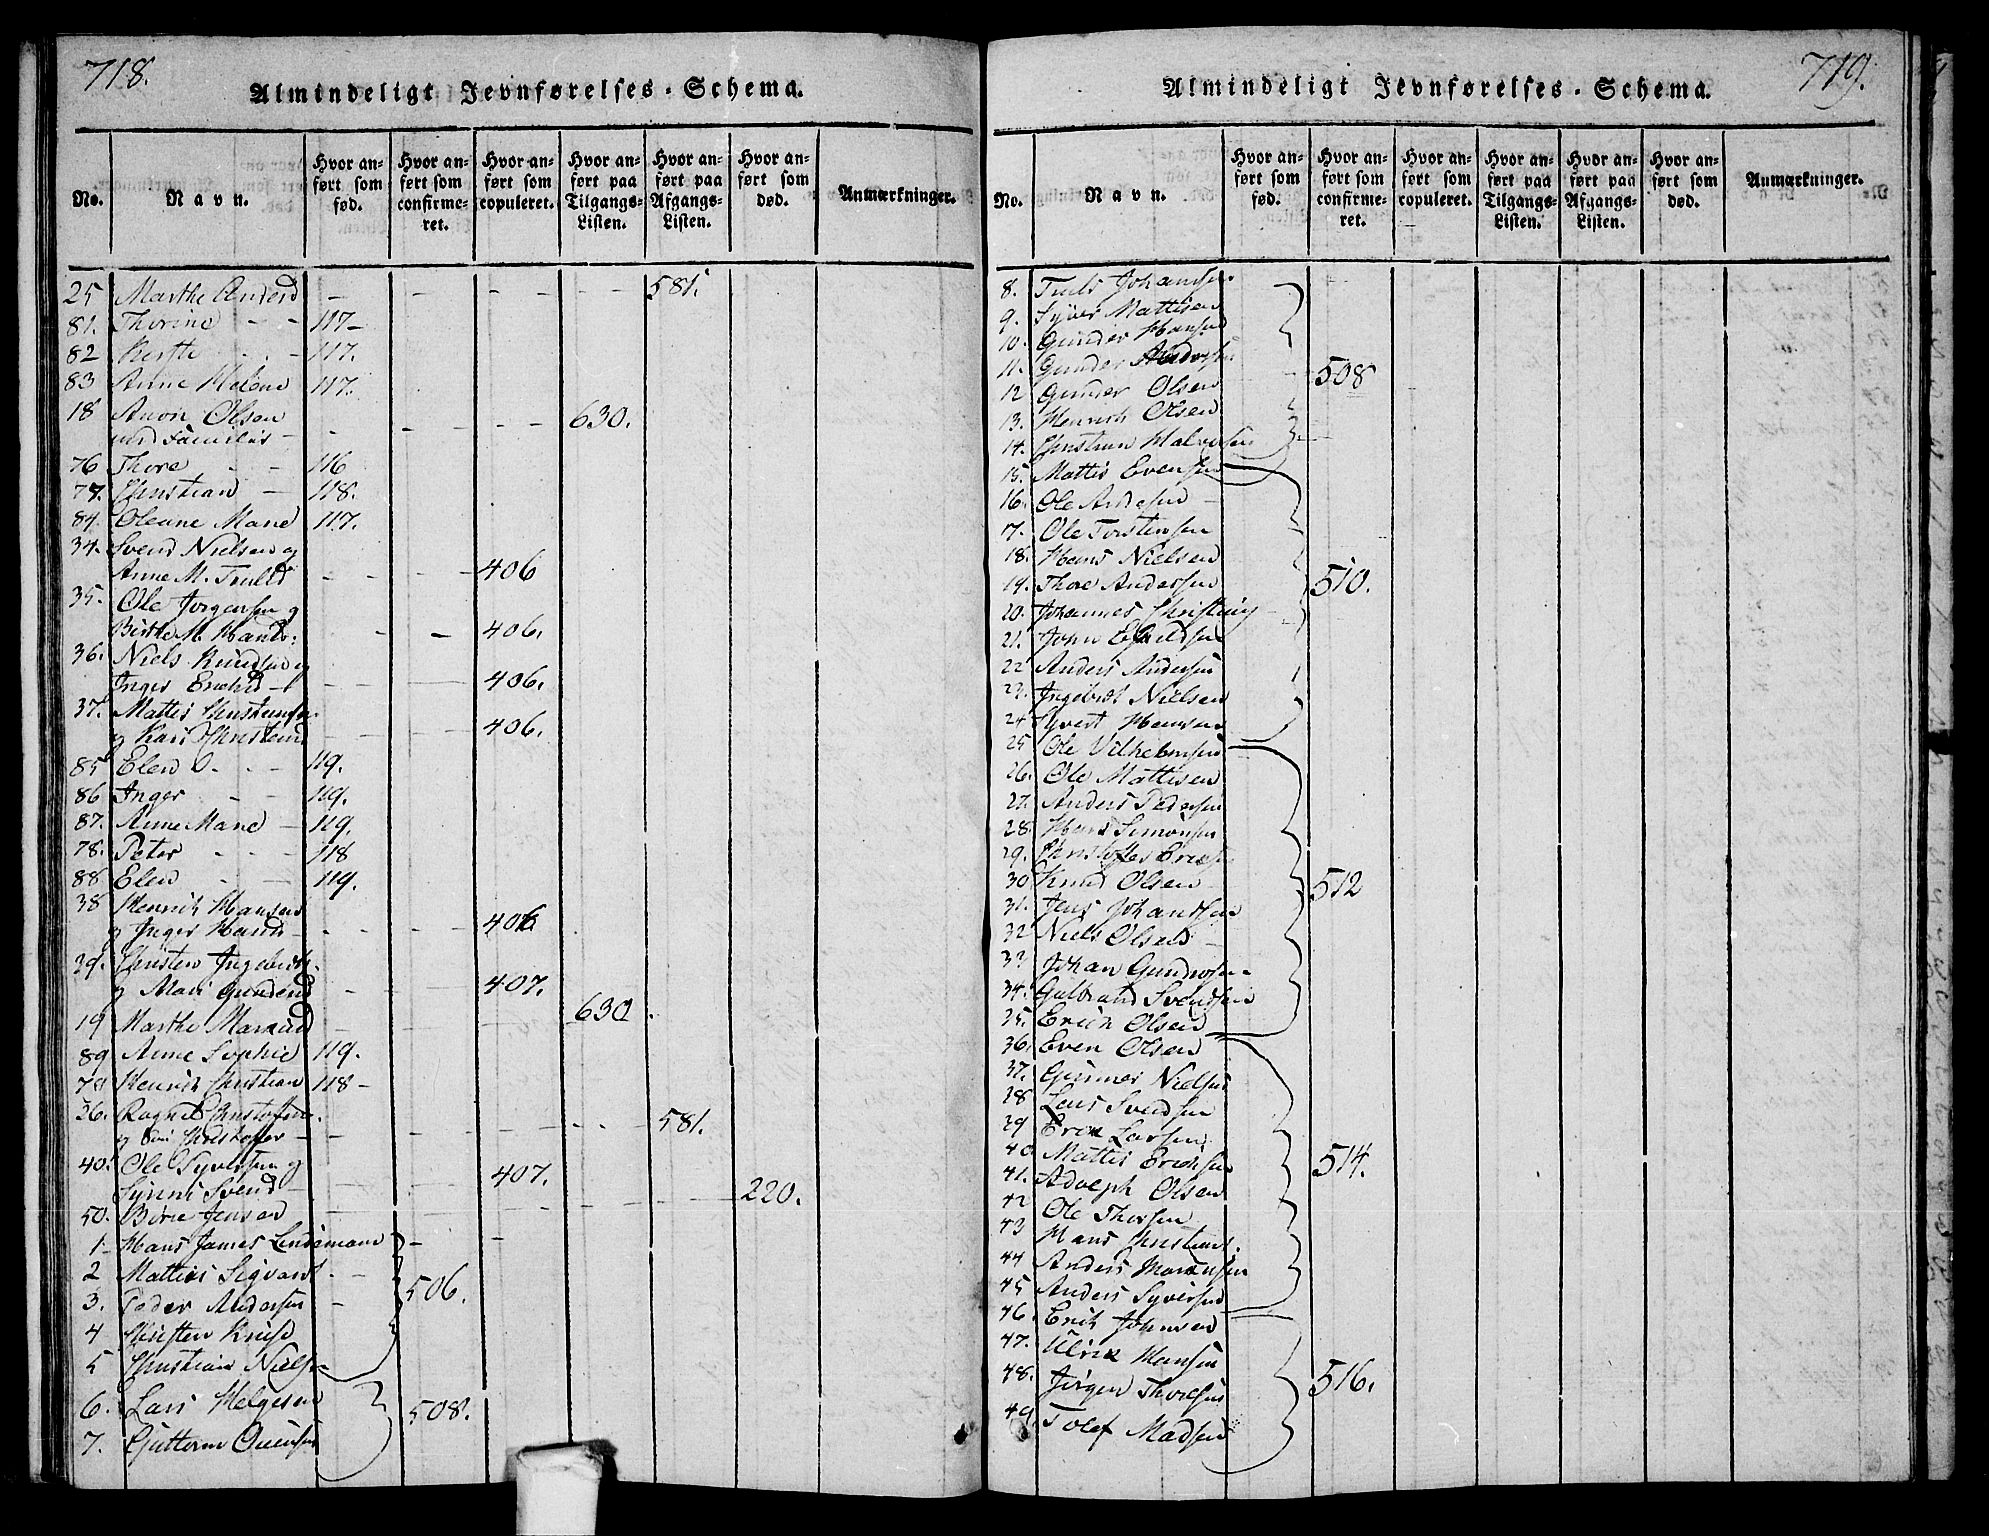 718.
Almindeligt Jevnførelses-Schema.
No.
Navn.
Hvor anført som fød.
Hvor anført som confirmeret.
Hvor anført som copuleret.
Hvor anført paa Tilgangs-Listen.
Hvor anført paa Afgangs-Listen.
Hvor anført som død.
Anmærkninger.
25 Marthe Andersd - - - - 581.
81. Thorine - - 117-
82 Kirsti - - 117.
83 Anne Malene 117.
18 Olsen - - - - 630.
med Familie -
76 Thore - - 116
77. Christian - 118.
84. Oleane Marie 117.
34. Svend Nielsen og
Anne M. Trulsd - - - 406
35. Ole Jørgensen og
Birthe M. Hansd. - - 406.
36. Niels Knudsen og
Inger Erichsd - - - 406.
37. Mattis Christensen
og Kari Christensd - - - 406.
85 Elen - - 119.
86 Inger - - 119.
87. Anne Marie - 119.
78. Peter - - - 118
88 Elen - - 119.
38 Henrich Hansen
og Inger Hansd - - - 406
39. Christen Ingebretsen
og Mari Gundersd - - 407.
19 Marthe - - - 630.
89 Anne Sophie 119.
79 Henrich Christian 118-
36. Christofersen
og Christoffer - - - - 581.
40. Ole Syversen og
Synni Svend - - 407.
50. Børre Jensen - - - - 220.
1- Hans James Lindemann - -
2 Mattias Sigvard - -
3. Peder Andersen - 506.
4 Christen Knuds
5 Christian Niels
6. Lars Helgesen
7. Guttorm 508.
719.
Almindeligt Jevnførelses-Schema.
No.
Navn.
Hvor anført som fød.
Hvor anført som confirmeret.
Hvor anført som copuleret.
Hvor anført paa Tilgangs-Listen.
Hvor anført paa Afgangs-Listen.
Hvor anført som død.
Anmærkninger.
8. Truls Johansen
9. Syver Mattisen
10. Gunder Hansen
11. Gunder Andersen
12 Gunder Olsen 508
13. Henrich Olsen
14. Christian Halvorsen
15. Mattis Evensen
16. Ole Andersen
7. Ole Torstensen
18. Hans Nielsen
19. Thore Andersen 510.
20. Johannes
21. John
22 Anders Andersen
23. Ingebret Nielsen
24 Syvert Hansen
25 Ole Vilhelmsen
26. Ole Mattisen
27. Anders Pedersen
28. Hans Simonsen
29. Christoffer Erichs
30 Knud Olsen 512
31. Jens Johansen
32 Niels Olsen
33 Johan Gundersen
34. Gulbrand Svendsen
35. Erich Olsen
36. Even Olsen
37. Gunner Nielsen
38 Lars Svendsen
39 Eric Larsen
40 Mattis Erichsen 514.
41. Adolph Olsen
42 Ole Thorsen
43 Hans Christians.
44 Anders
45 Anders Syversen
46. Erich Johnsen
47. Ulrik Hansen
48. Jørgen Thoresen 516.
49 Tolef Madsen